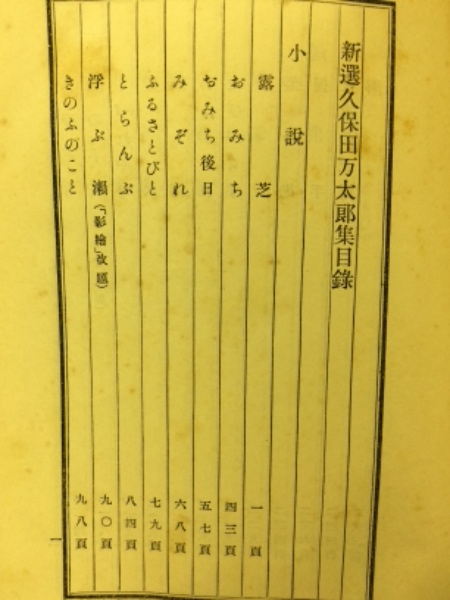 新選久保田万太郎集目錄
小說
露芝 一頁
おみち 四三頁
おみち後日 五七頁
みぞれ 六八頁
ふるさとびと 七九頁
とらんぷ 八四頁
浮ぶ瀨(「影繪」改題) 九〇頁
きのふのこと 九八頁
一